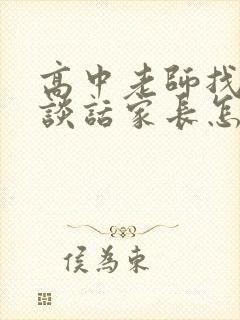 高中老師找
談話家長怎
侯為東